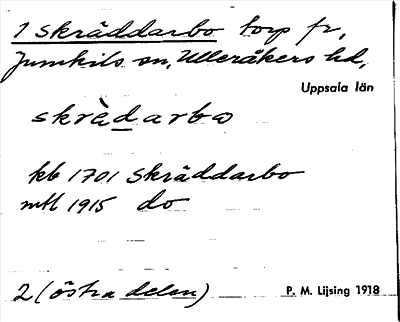 1 Skräddarbo torp fr,
Jumkils sn, Ulleråkers hd,
Uppsala län
skrèdarbω
kb 1701 Skräddarbo
mtl 1915 do
2 (östra delen)
P. M. Lijsing 1918